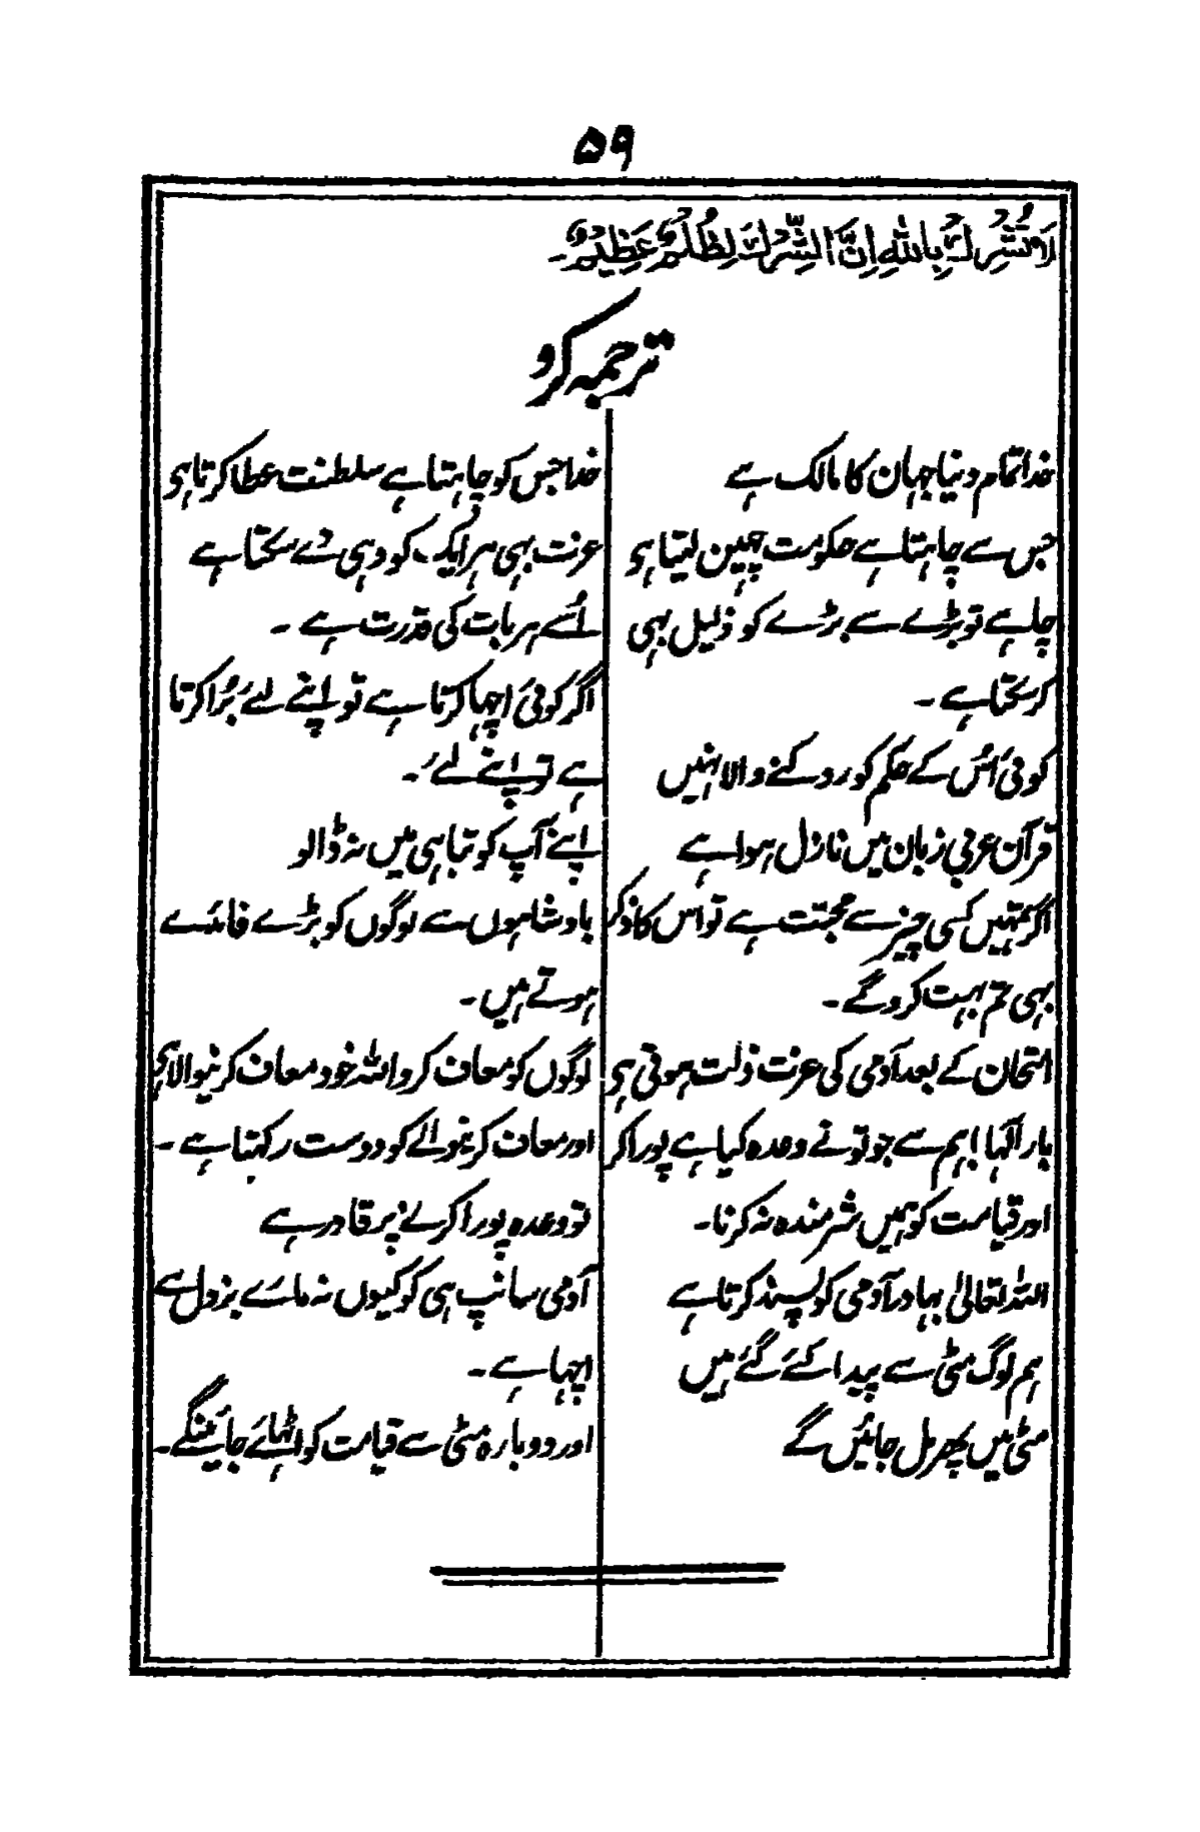 ۵۹
لَا تُشْرِكْ بِاللّٰهِ اِنَّ الشِّرْكَ لَظُلْمٌ عَظِيْمٌ۔
ترجمہ کرو
خدا تمام دنیا جہان کا مالک ہے
جس سے چاہتا ہے حکومت چھین لیتا ہی
چاہے تو بڑے سے بڑے کو ذلیل بہی
کر سکتا ہے ۔
کوئی اُس کے حکم کو رد کرنے والا نہیں
قرآن عربی زبان میں نازل ہوا ہے
اگر تمہیں کسی چیز سے محبت ہے تو اس کا ذکر
بہی تم بہت کرو گے ۔
امتحان کے بعد آدمی کی عزت ذلت ہوتی ہی
بار الٰہا! ہم سے جو تو نے وعدہ کیا ہے پورا کر
اور قیامت کو ہمیں شرمندہ نہ کرنا ۔
اللہ تعالیٰ بہادر آدمی کو پسند کرتا ہے
ہم لوگ مٹی سے پیدا کئے گئے ہیں
مٹی میں پھر مل جائیں گے
خدا جس کو چاہتا ہے سلطنت عطا کرتا ہی
عزت بہی ہر ایک کو وہی دے سکتا ہے
اُسے ہر بات کی قدرت ہے ۔
اگر کوئی اچہا کرتا ہے تو اپنے لئے بُرا کرتا
ہے تو اپنے لئے ۔
اپنے آپ کو تباہی میں نہ ڈالو
بادشاہوں سے لوگوں کو بڑے فائدے
ہوتے ہیں ۔
لوگوں کو معاف کرو اللہ خود معاف کرنیوالا ہی
اور معاف کرنیوالے کو دوست رکہتا ہے ۔
تو وعدہ پورا کرنے پر قادر ہے
آدمی سانپ ہی کو کیوں نہ مارے بزدل سے
اچہا ہے ۔
اور دوبارہ مٹی سے قیامت کو اٹہائے جائینگے ۔